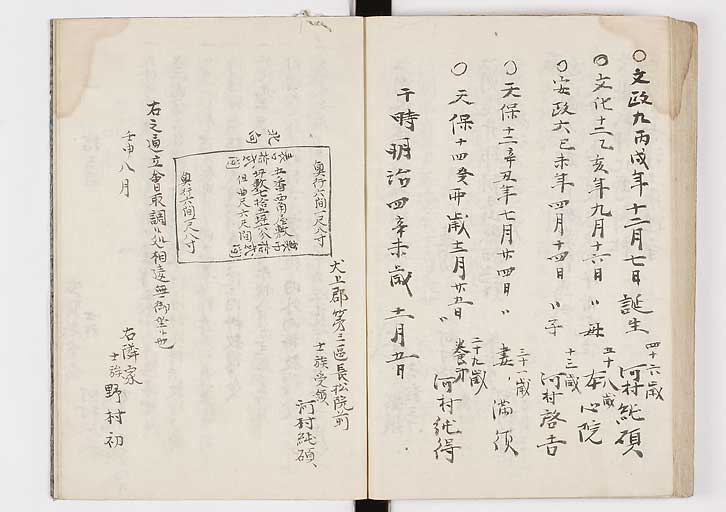 ○文政九丙戌年十二月七日誕生 四十六歳 河村純碩
○文化十二乙亥年九月十六日〃母 五十八歳 本心院
○安政六己未年四月十四日〃子 十三歳 河村啓吉
○天保十二辛丑年七月廿四日〃妻 三十一歳 満須
○天保十四癸卯歳十二月廿五日〃 二十九歳 養弟 河村純得
干時明治四辛未歳十一月五日
犬上郡第三區長松院前
士族受領
河村純碩
北向
奥行六間一尺八寸
廿番 屋敷
坪数七拾五坪八分
但曲尺六尺間
奥行六間一尺八寸
右之通立會取調候処相違無御坐候也
壬申八月
右隣家
士族 野村初